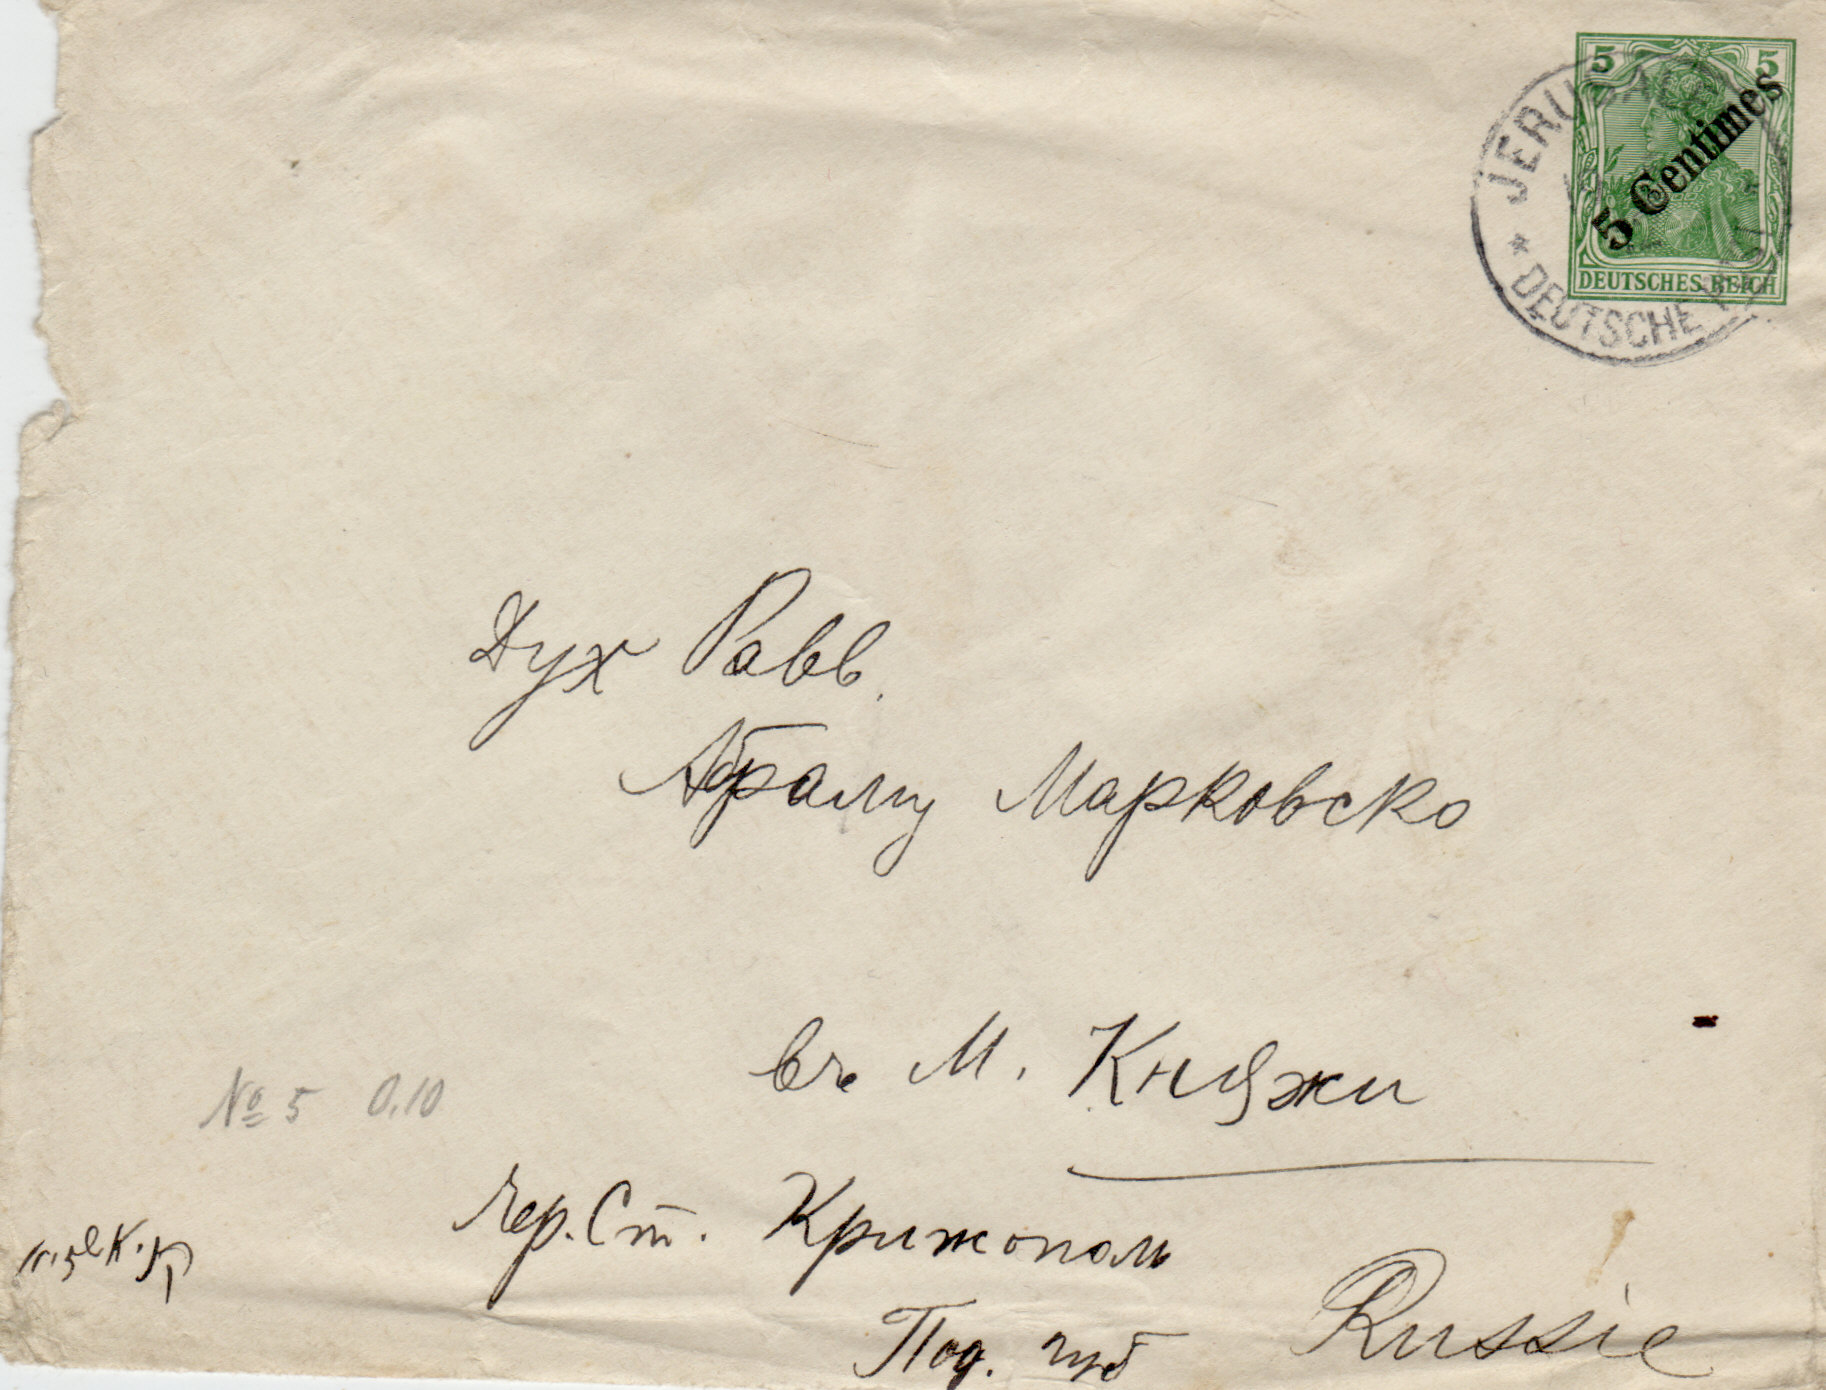 5 5
5 Centimes
DEUTSCHES REICH
JERUSALEM
* DEUTSCHE POST
Дух Равв.
Абраму Марковско
въ М. Княжи
№ 5 0.10
чер. Ст. Крижополь
Под. губ
Russie